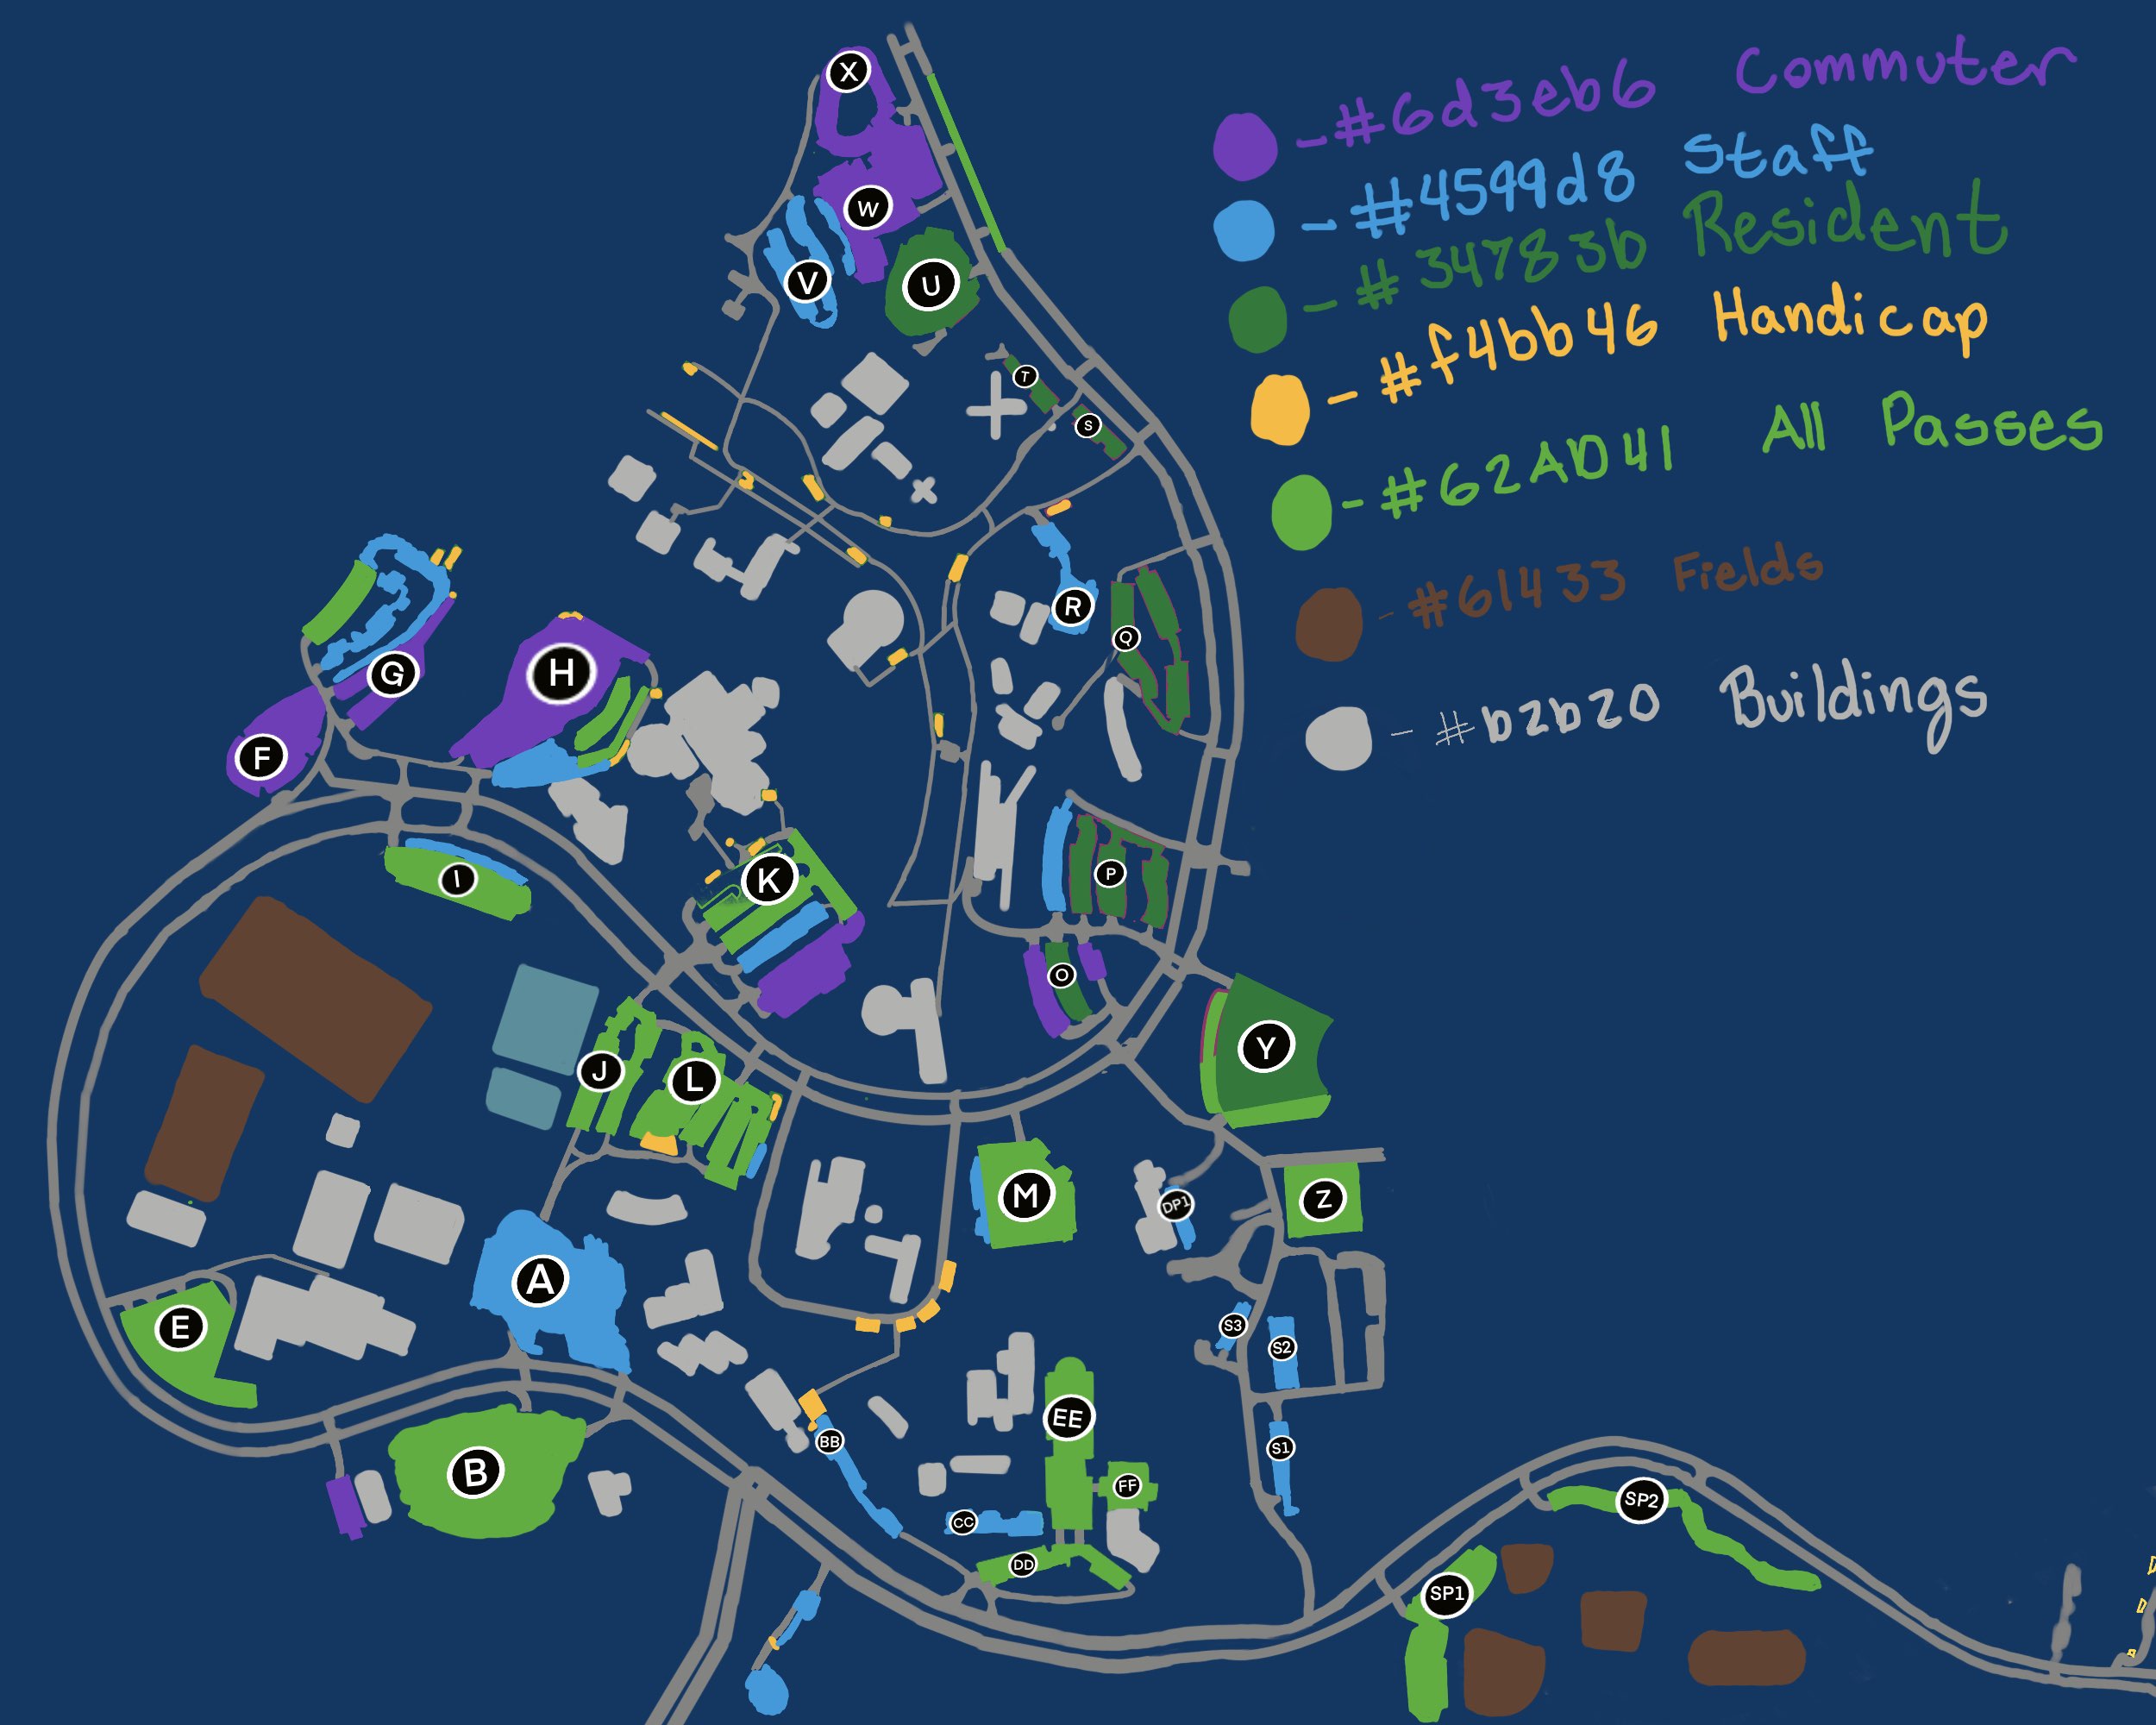 -#6d3eb6 Commuter
-#4599d8 Staff
-#34783b Resident
-#f4bb46 Handicap
-#62AD41 All Passes
-#61433 Fields
-#b2b2b0 Buildings
X
W
V
U
T
S
R
Q
G
H
F
P
K
I
O
Y
J
L
M
Z
DP1
A
E
S3
S2
EE
BB
S1
B
FF
SP2
CC
DD
SP1